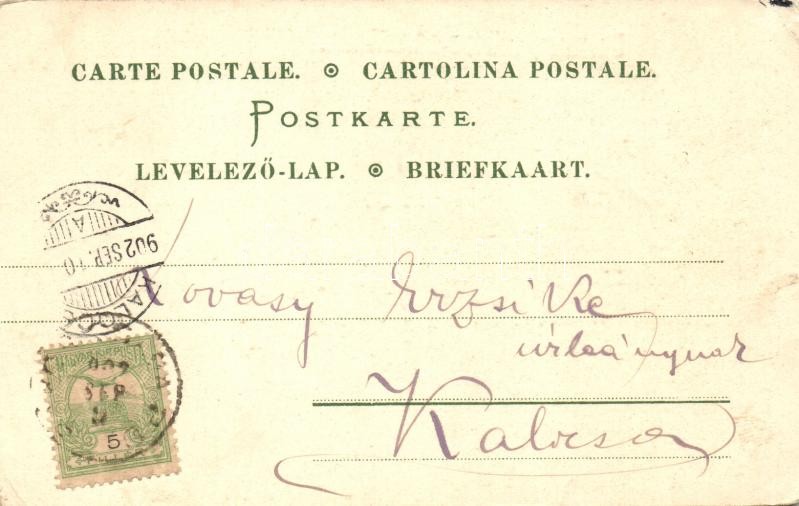 CARTE POSTALE. ⊙ CARTOLINA POSTALE.
POSTKARTE.
LEVELEZŐ-LAP. ⊙ BRIEFKAART.
902 SEP. 10
Kovasy Erzsike
úrleánynak
Kalocsa
5